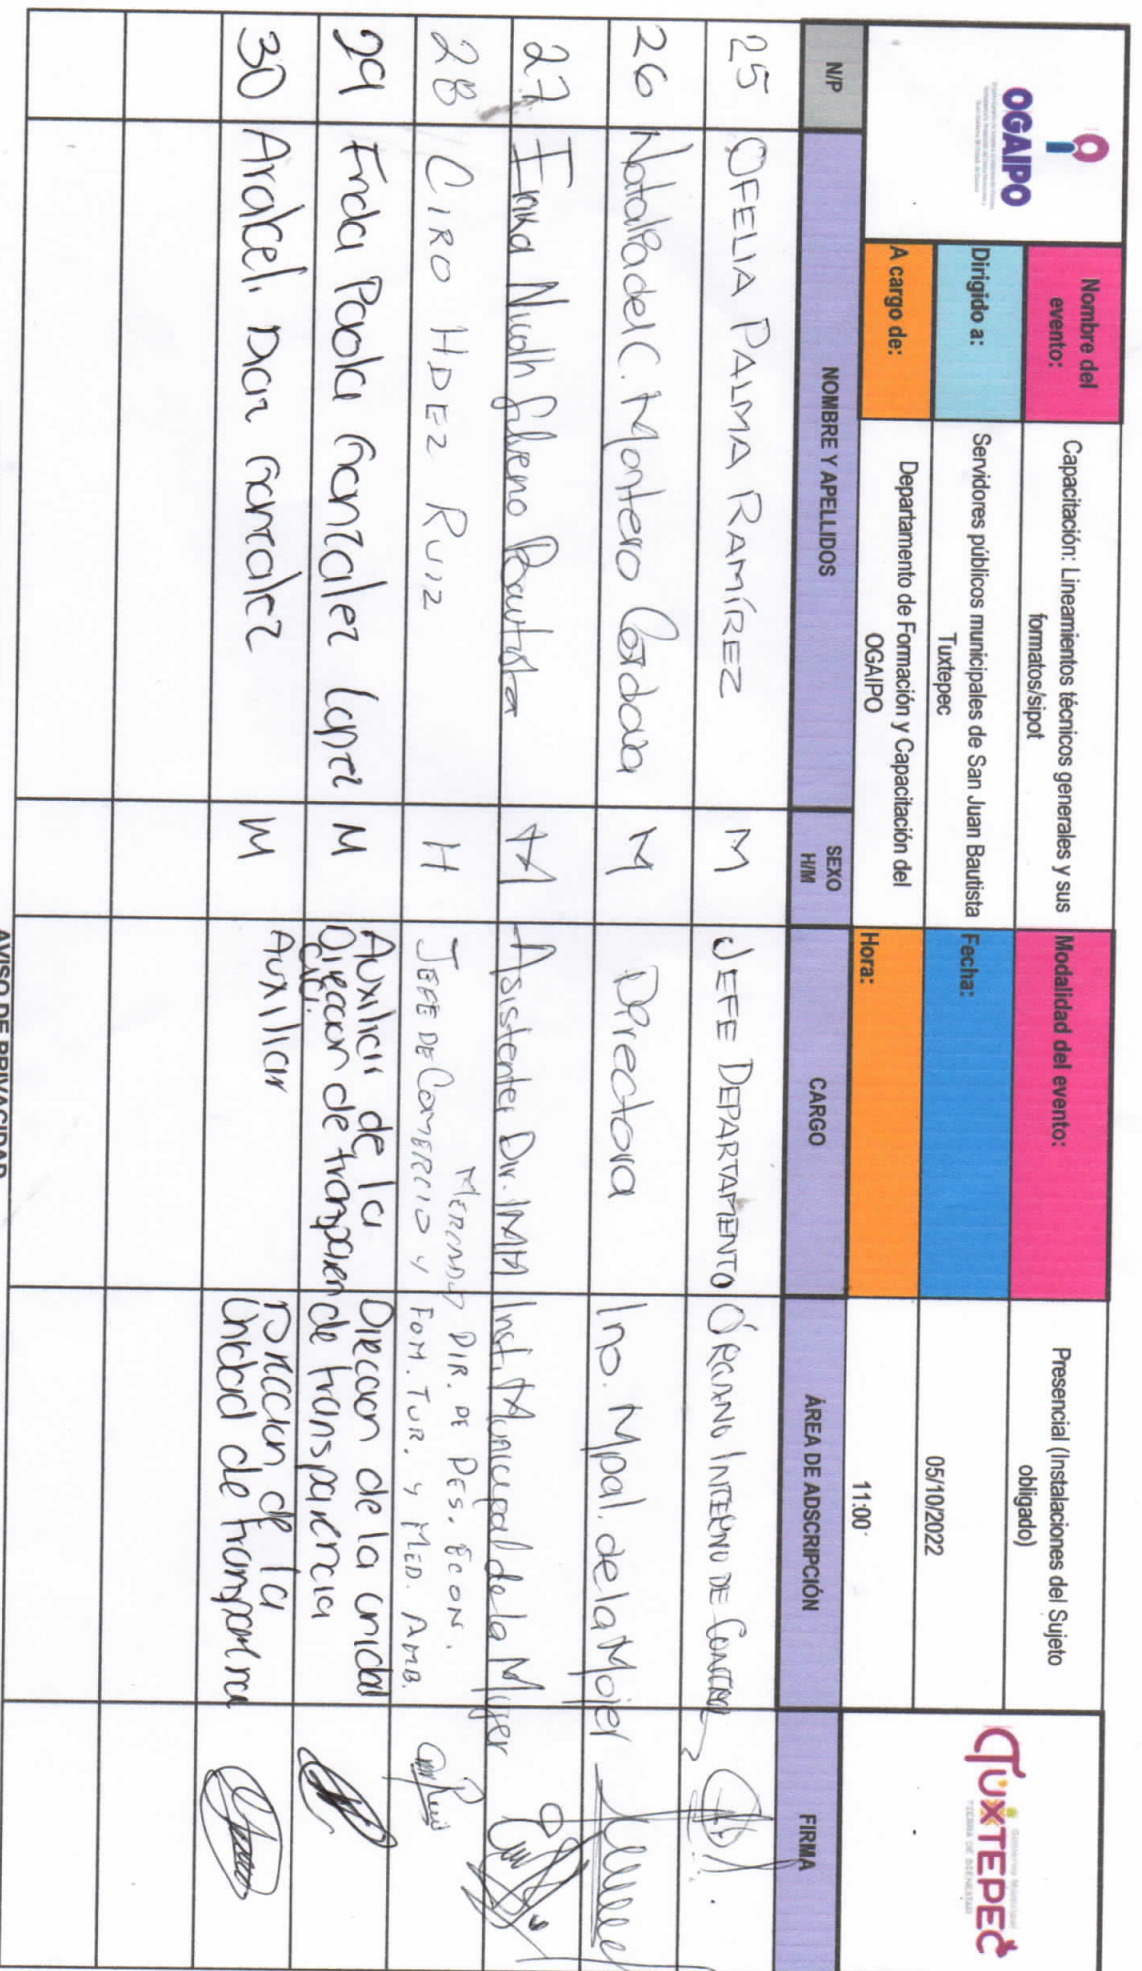 OGAIPO
Nombre del evento:
Capacitación: Lineamientos técnicos generales y sus formatos/sipot
Modalidad del evento:
Presencial (Instalaciones del Sujeto obligado)
Dirigido a:
Servidores públicos municipales de San Juan Bautista Tuxtepec
Fecha:
05/10/2022
A cargo de:
Departamento de Formación y Capacitación del OGAIPO
Hora:
11:00
Gobierno Municipal
TUXTEPEC
TIERRA DE BIENESTAR
N/P NOMBRE Y APELLIDOS SEXO H/M CARGO ÁREA DE ADSCRIPCIÓN FIRMA
25 OFELIA PALMA RAMÍREZ M JEFE DEPARTAMENTO ÓRGANO INTERNO DE CONTROL
26 Natalia del C. Montero Cordova M Directora Ins. Mpal. de la Mujer
27 Bautista M Asistente Dir. IMM Inst. Municipal de la Mujer
28 CIRO HDEZ RUIZ H JEFE DE COMERCIO Y MERCADO DIR. DE DES. ECON. FOM. TUR. Y MED. AMB.
29 Paola Gonzalez Lopez M Auxiliar de la Direccion de transparencia Direccion de la unidad de transparencia
30 Araceli Gonzalez M Auxiliar Direccion de la Unidad de
AVISO DE PRIVACIDAD